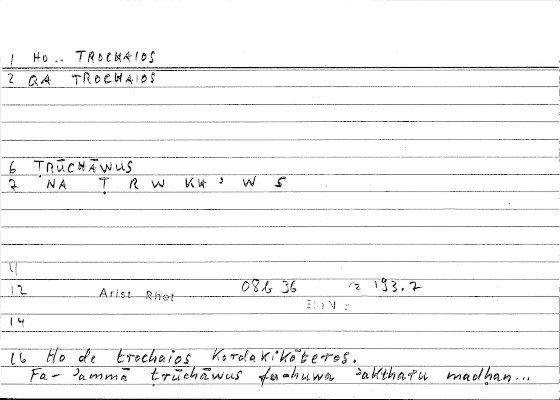 1 HO.. TROCHAIOS
2 QA TROCHAIOS
6 ṬRŪCHĀWUS
7 NA Ṭ R W KH ʾ W S
11
12 Arist Rhet 08b 36 193.7
14
16 Ho de trochaios kordakikōteros.
Fa-ʾammā ṭrūchāwus fa-huwa ʾaktharu